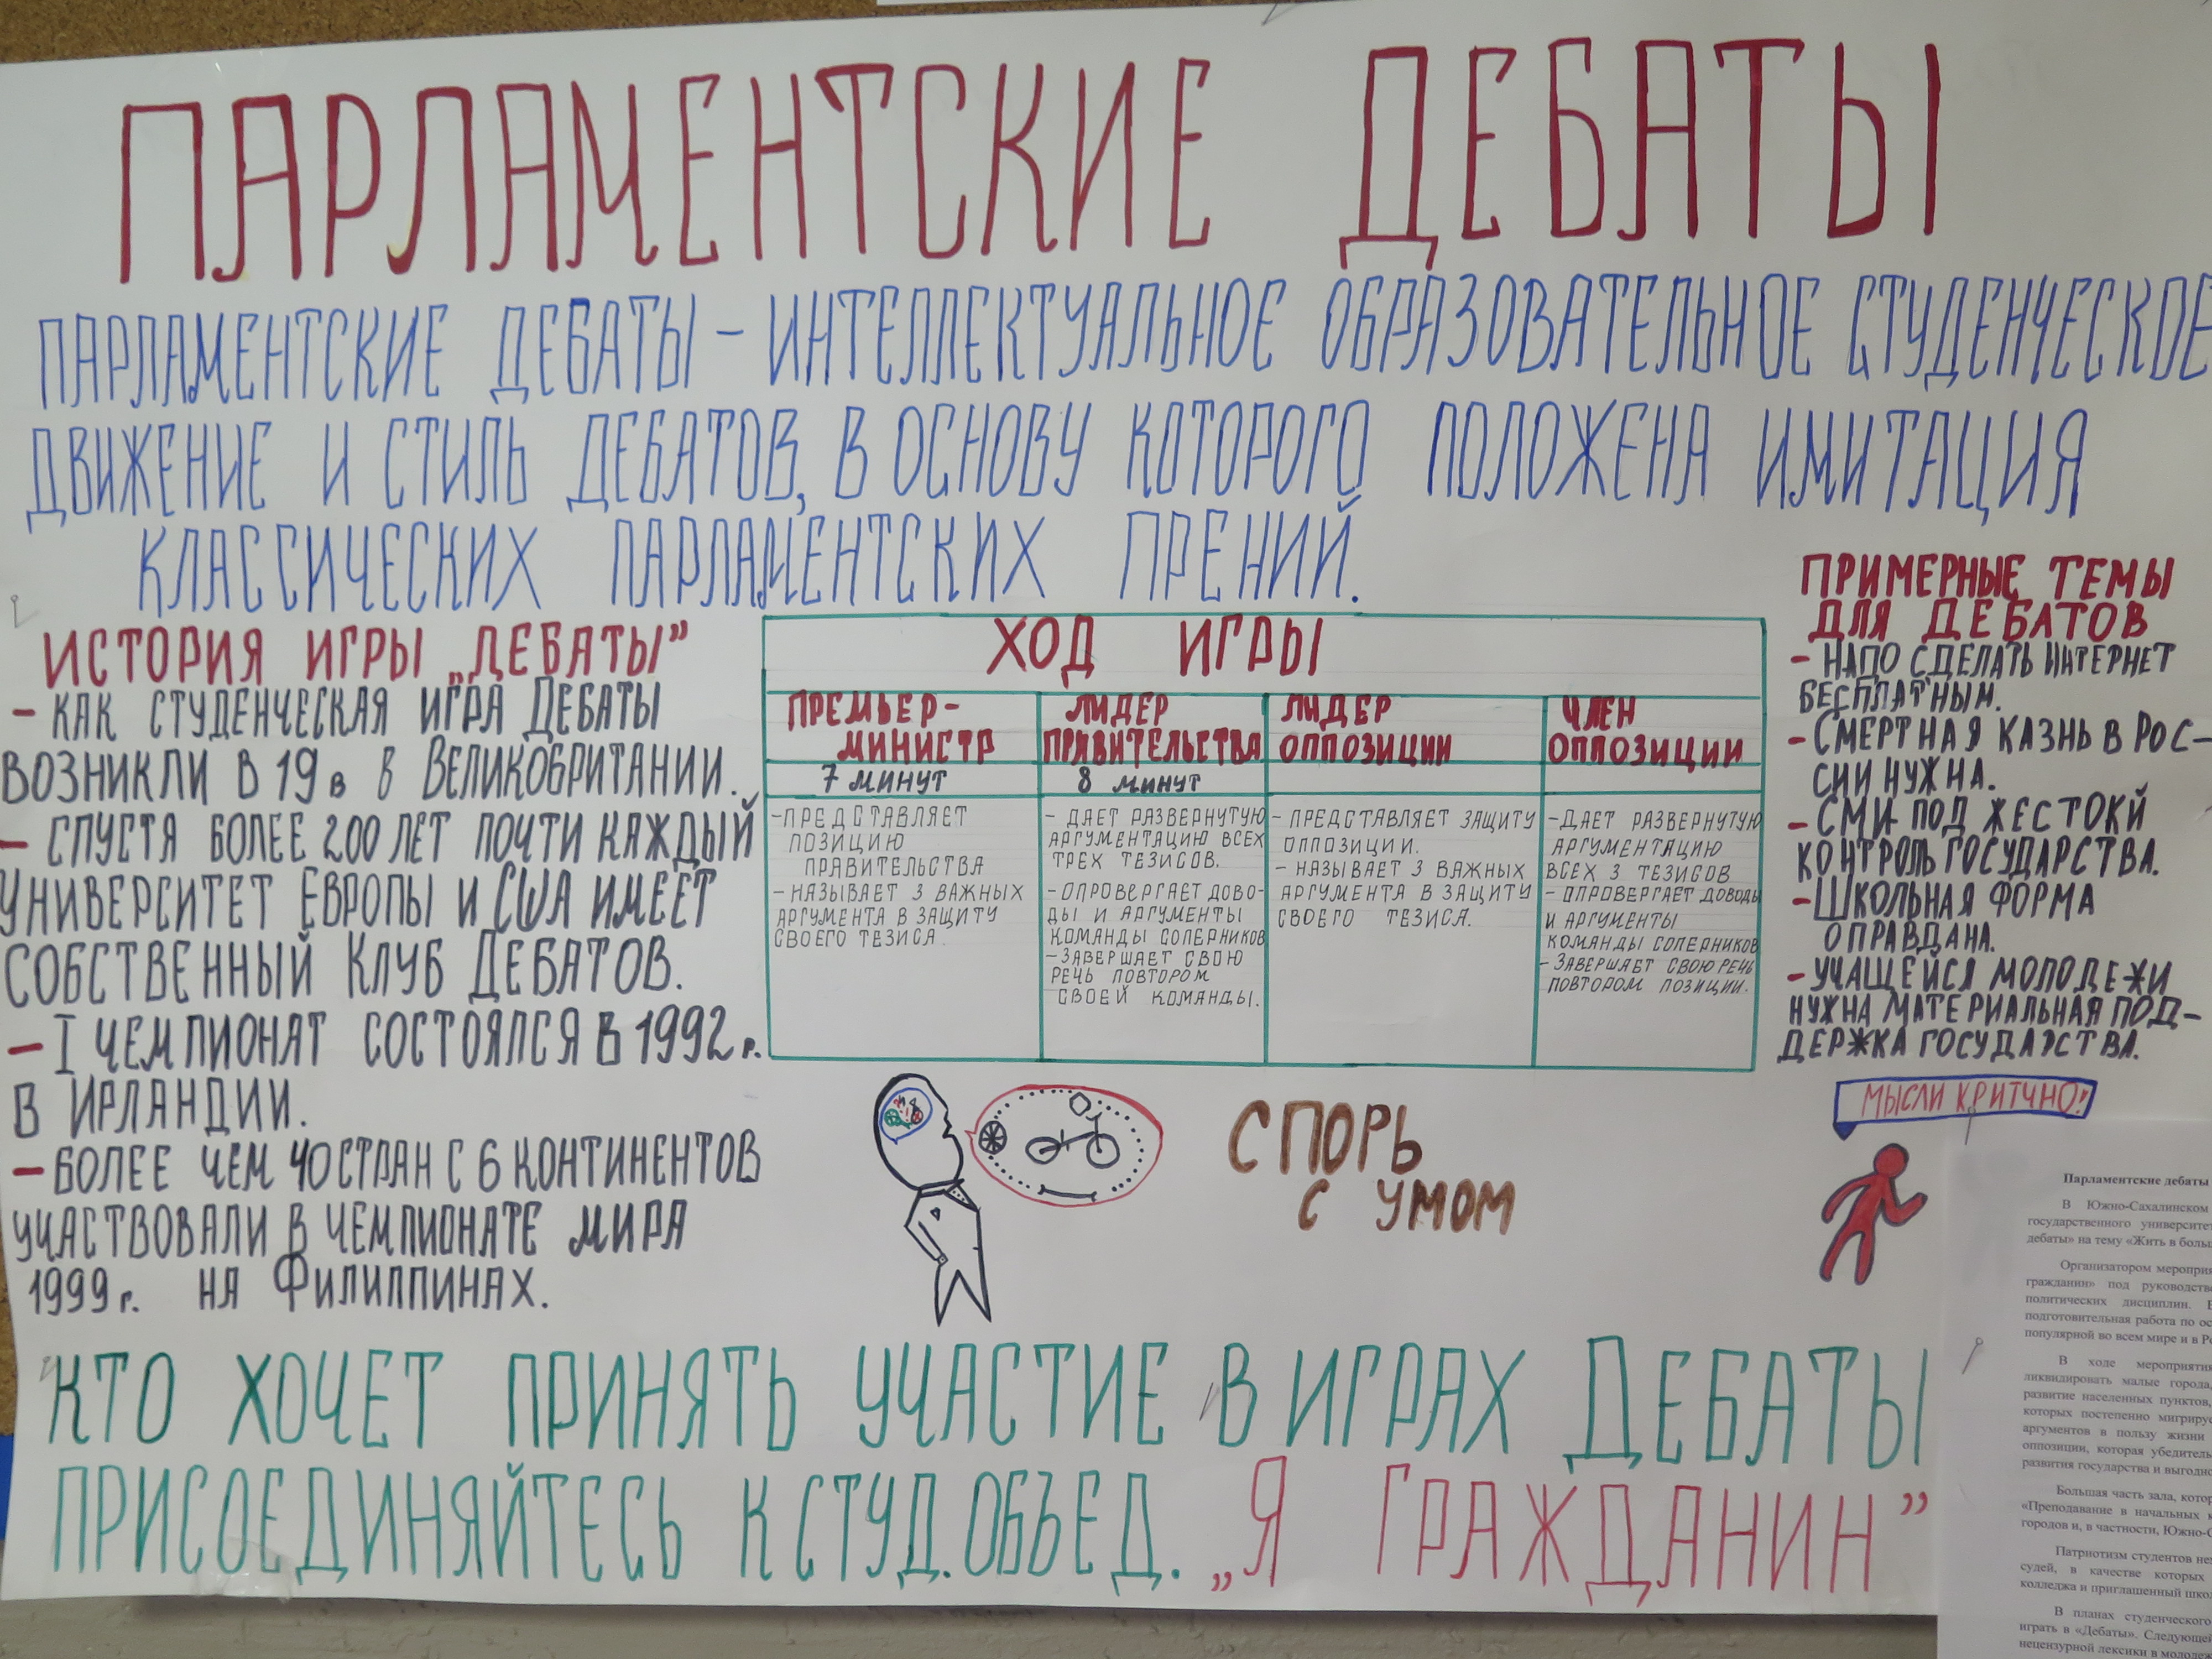 ПАРЛАМЕНТСКИЕ ДЕБАТЫ
ПАРЛАМЕНТСКИЕ ДЕБАТЫ – ИНТЕЛЛЕКТУАЛЬНОЕ ОБРАЗОВАТЕЛЬНОЕ СТУДЕНЧЕСКОЕ
ДВИЖЕНИЕ И СТИЛЬ ДЕБАТОВ, В ОСНОВУ КОТОРОГО ПОЛОЖЕНА ИМИТАЦИЯ
КЛАССИЧЕСКИХ ПАРЛАМЕНТСКИХ ПРЕНИЙ.
ИСТОРИЯ ИГРЫ „ДЕБАТЫ"
– КАК СТУДЕНЧЕСКАЯ ИГРА ДЕБАТЫ
ВОЗНИКЛИ В 19 в В ВЕЛИКОБРИТАНИИ.
– СПУСТЯ БОЛЕЕ 200 ЛЕТ ПОЧТИ КАЖДЫЙ
УНИВЕРСИТЕТ ЕВРОПЫ И США ИМЕЕТ
СОБСТВЕННЫЙ КЛУБ ДЕБАТОВ.
– I ЧЕМПИОНАТ СОСТОЯЛСЯ В 1992 г.
В ИРЛАНДИИ.
– БОЛЕЕ ЧЕМ 40 СТРАН С 6 КОНТИНЕНТОВ
УЧАСТВОВАЛИ В ЧЕМПИОНАТЕ МИРА
1999 г. НА ФИЛИППИНАХ.
ХОД ИГРЫ
ПРЕМЬЕР-
МИНИСТР
7 МИНУТ
– ПРЕДСТАВЛЯЕТ
ПОЗИЦИЮ
ПРАВИТЕЛЬСТВА
– НАЗЫВАЕТ 3 ВАЖНЫХ
АРГУМЕНТА В ЗАЩИТУ
СВОЕГО ТЕЗИСА.
ЛИДЕР
ПРИВИТЕЛЬСТВА
8 МИНУТ
– ДАЕТ РАЗВЕРНУТУЮ
АРГУМЕНТАЦИЮ ВСЕХ
ТРЕХ ТЕЗИСОВ.
– ОПРОВЕРГАЕТ ДОВО-
ДЫ И АРГУМЕНТЫ
КОМАНДЫ СОПЕРНИКОВ
– ЗАВЕРШАЕТ СВОЮ
РЕЧЬ ПОВТОРОМ
СВОЕЙ КОМАНДЫ.
ЛИДЕР
ОППОЗИЦИИ
– ПРЕДСТАВЛЯЕТ ЗАЩИТУ
ОППОЗИЦИИ.
– НАЗЫВАЕТ 3 ВАЖНЫХ
АРГУМЕНТА В ЗАЩИТУ
СВОЕГО ТЕЗИСА.
ЧЛЕН
ОППОЗИЦИИ
– ДАЕТ РАЗВЕРНУТУЮ
АРГУМЕНТАЦИЮ
ВСЕХ 3 ТЕЗИСОВ
– ОПРОВЕРГАЕТ ДОВОДЫ
И АРГУМЕНТЫ
КОМАНДЫ СОПЕРНИКОВ
– ЗАВЕРШАЕТ СВОЮ РЕЧЬ
ПОВТОРОМ ПОЗИЦИИ.
ПРИМЕРНЫЕ ТЕМЫ
ДЛЯ ДЕБАТОВ
– НАПО СДЕЛАТЬ ИНТЕРНЕТ
БЕСПЛАТНЫМ.
– СМЕРТНАЯ КАЗНЬ В РОС-
СИИ НУЖНА.
– СМИ ПОД ЖЕСТОКЙ
КОНТРОЛЬ ГОСУДАРСТВА.
– ШКОЛЬНАЯ ФОРМА
ОПРАВДАНА.
– УЧАЩЕЙСЯ МОЛОДЕЖИ
НУЖНА МАТЕРИАЛЬНАЯ ПОД-
ДЕРЖКА ГОСУДАРСТВА.
МЫСЛИ КРИТЧНО!
СПОРЬ
С УМОМ
КТО ХОЧЕТ ПРИНЯТЬ УЧАСТИЕ В ИГРАХ ДЕБАТЫ
ПРИСОЕДИНЯЙТЕСЬ К СТУД.ОБЪЕД. „Я ГРАЖДАНИН"
Парламентские дебаты
В Южно-Сахалинском
государственного
дебаты» на тему «Жить в
Организатором
гражданин» под
политических дисциплин.
подготовительная работа по
популярной во всем мире и в
В ходе
ликвидировать малые города,
развитие населенных пунктов,
которых постепенно
аргументов в пользу жизни
оппозиции, которая
развития государства и
Большая часть зала,
«Преподавание в начальных
городов и, в частности,
Патриотизм студентов
судей, в качестве которых
колледжа и приглашенный
В планах студенческого
играть в «Дебаты».
нецензурной лексики в